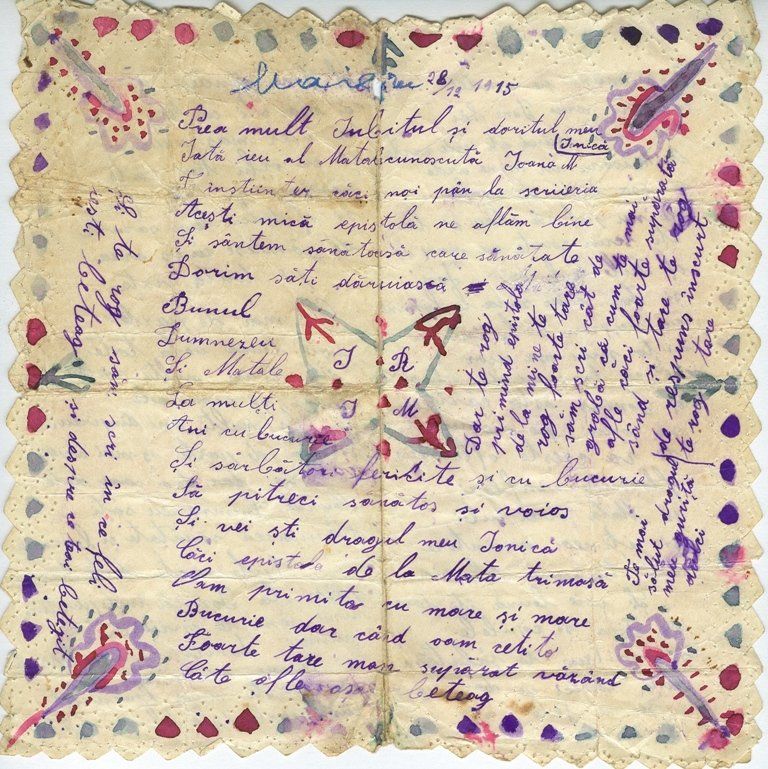 28/12 1915
Prea mult Iubitul și doritul meu
Ionică
Iată ieu al Matale cunoscută Ioană M
Î instiintez căci noi pân la scrieria
Acesti mică epistolă ne aflăm bine
Și sântem sănătoasă care sănătate
Dorim săti dăruiască
Bunul
Dumnezeu
Și Matale
La mulți
Ani cu bucurie
Și sărbători fericite și cu bucurie
Să pitreci sanătos și voios
Și vei ști dragul meu Ionică
Căci epistola de la Mata trimasă
Cam primito cu mare și mare
Bucurie dar când oam cetito
Foarte tare mam supărat văzând
Câte afle beteag
I R
I M
Dar te rog
primind epistola
de la mine te
rog foarte tare
sam scri cât de
grabă că cum te mai
afle căci foarte supărată
sând și tare te rog
de respuns înscurt
te rog tare
Te mai
sălut dragul
meu guriță
dulci
Și te rog sâm scri în ce feli
iesti beteag și despre ce teai betejit